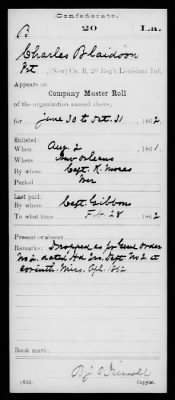 (Confederate.)
B 20 La.
Charles Blaidson
Pvt, (New) Co. B, 20 Reg't Louisiana Inf.
Appears on
Company Muster Roll
of the organization named above,
for June 30 to Oct. 31, 1862
Enlisted:
When Aug. 2, 1861.
Where New Orleans
By whom Capt. R. Mores
Period War
Last paid:
By whom Capt. Gibbons
To what time Feb 28, 1862
Present or absent
Remarks: Dropped as per Genl Order
No 2. dated Hd Qrs. Dept No 2. at
Corinth, Miss. Apl. 1862
Book mark:
(642) Copyist.